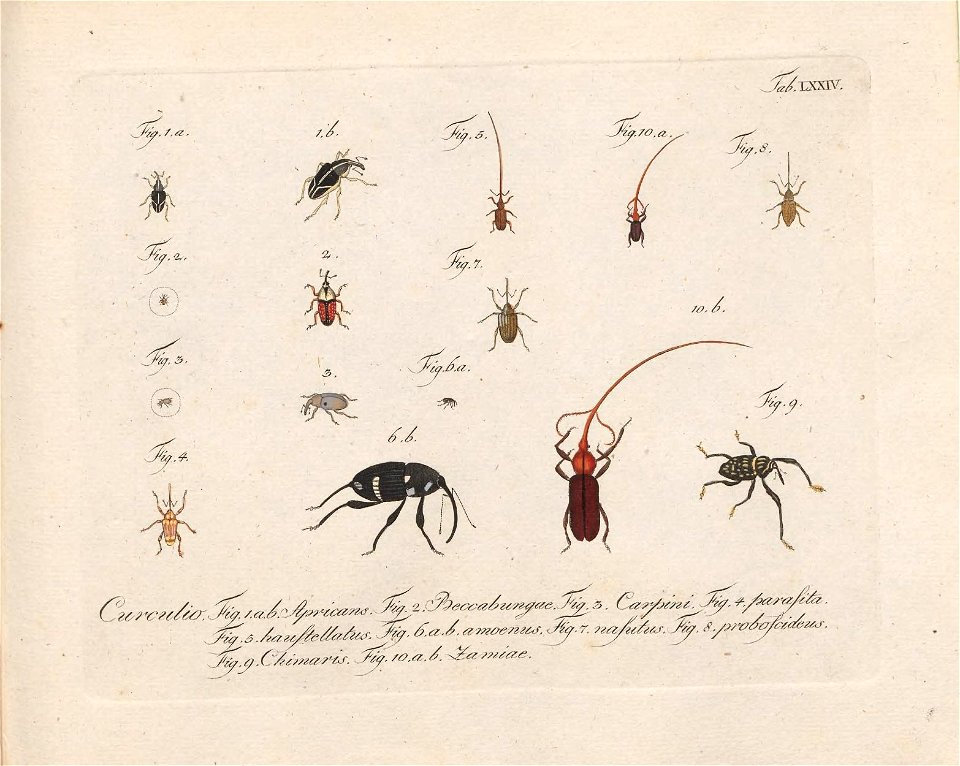 Tab. LXXIV.
Fig. 1. a.
1. b.
Fig. 5.
Fig. 10. a.
Fig. 8.
Fig. 2.
2.
Fig. 7.
10. b.
Fig. 3.
3.
Fig. 6. a.
Fig. 9.
6. b.
Fig. 4.
Curculio. Fig. 1. a b. Apricans. Fig. 2. Beccabungae. Fig. 3. Carpini. Fig. 4. paraſita.
Fig. 5. hauſtellatus. Fig. 6. a. b. amoenus. Fig. 7. naſutus. Fig. 8. proboſcideus.
Fig. 9. Chimaris. Fig. 10. a. b. Zamiae.